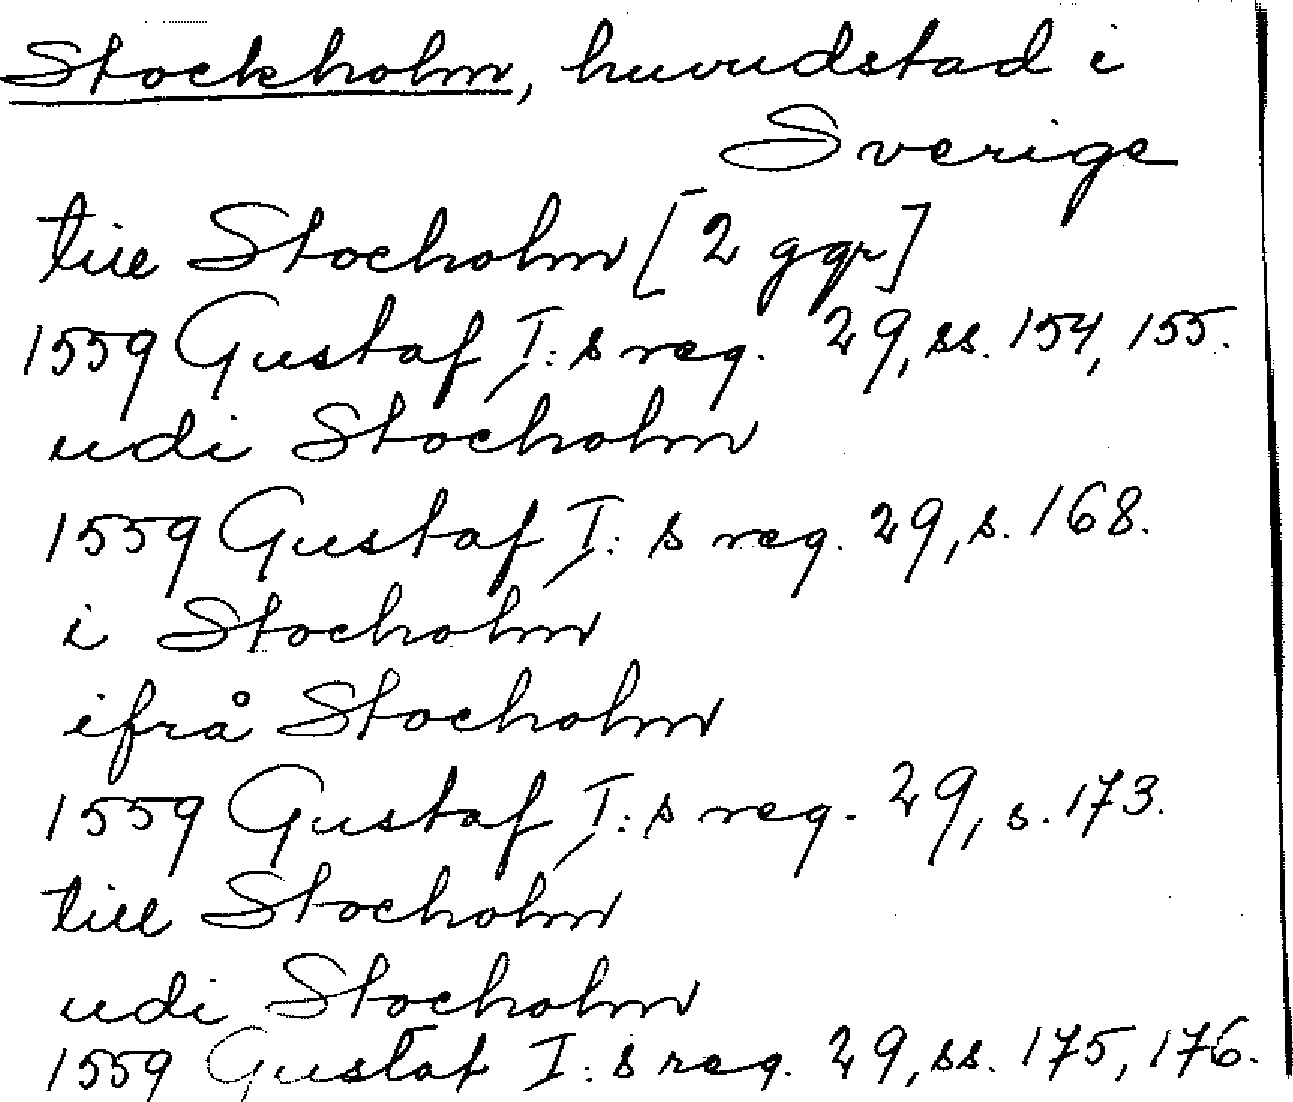 Stockholm, huvudstad i
Sverige
till Stocholm [2 ggr]
1559 Gustaf I:s reg. 29, ss. 154, 155.
udi Stocholm
1559 Gustaf I:s reg. 29, s. 168.
i Stocholm
ifrå Stocholm
1559 Gustaf I:s reg. 29, s. 173.
till Stocholm
udi Stocholm
1559 Gustaf I:s reg. 29, ss. 175, 176.